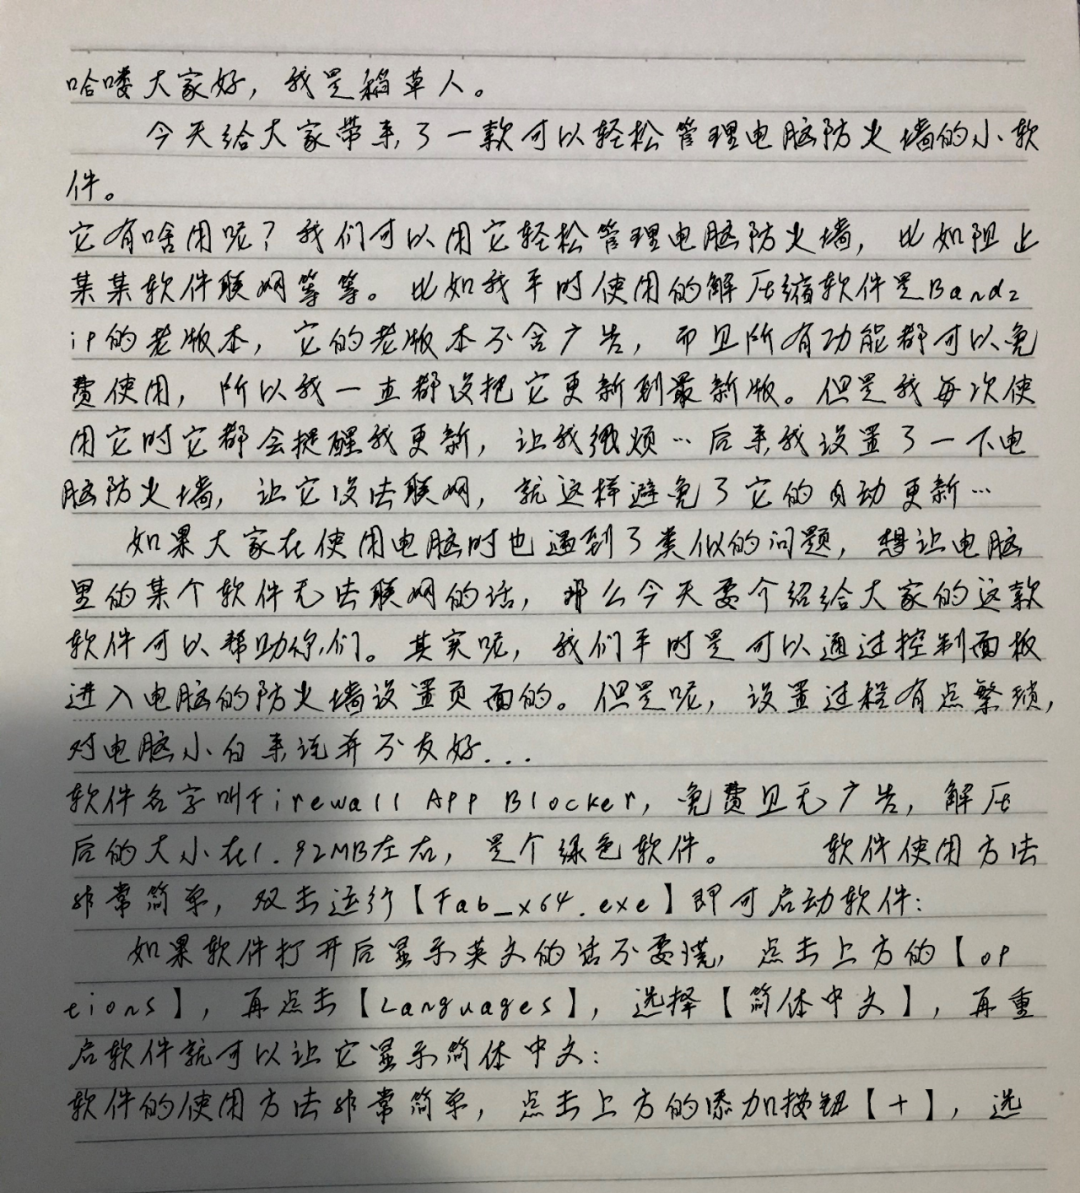 哈喽大家好，我是稻草人。
今天给大家带来了一款可以轻松管理电脑防火墙的小软
件。
它有啥用呢？我们可以用它轻松管理电脑防火墙，比如阻止
某某软件联网等等。比如我平时使用的解压缩软件是Bandz
ip的老版本，它的老版本不含广告，而且所有功能都可以免
费使用，所以我一直都没把它更新到最新版。但是我每次使
用它时它都会提醒我更新，让我很烦…后来我设置了一下电
脑防火墙，让它没法联网，就这样避免了它的自动更新…
如果大家在使用电脑时也遇到了类似的问题，想让电脑
里的某个软件无法联网的话，那么今天要介绍给大家的这款
软件可以帮助你们。其实呢，我们平时是可以通过控制面板
进入电脑的防火墙设置页面的。但是呢，设置过程有点繁琐，
对电脑小白来说并不友好...
软件名字叫Firewall App Blocker，免费且无广告，解压
后的大小在1.92MB左右，是个绿色软件。 软件使用方法
非常简单，双击运行【Fab_x64.exe】即可启动软件：
如果软件打开后显示英文的话不要慌，点击上方的【op
tions】，再点击【Languages】，选择【简体中文】，再重
启软件就可以让它显示简体中文：
软件的使用方法非常简单，点击上方的添加按钮【+】，选